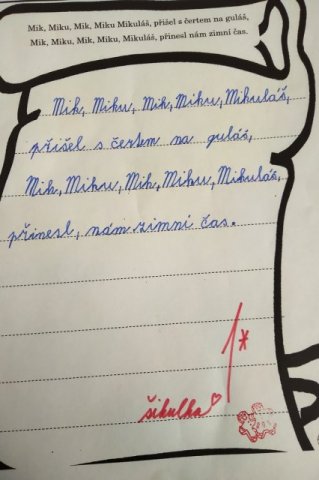 Mik, Miku, Mik, Miku Mikuláš, přišel s čertem na guláš,
Mik, Miku, Mik, Miku, Mikuláš, přinesl nám zimní čas.
Mik, Miku, Mik, Miku, Mikuláš,
přišel s čertem na guláš,
Mik, Miku, Mik, Miku, Mikuláš,
přinesl, nám zimní čas.
1*
šikulka